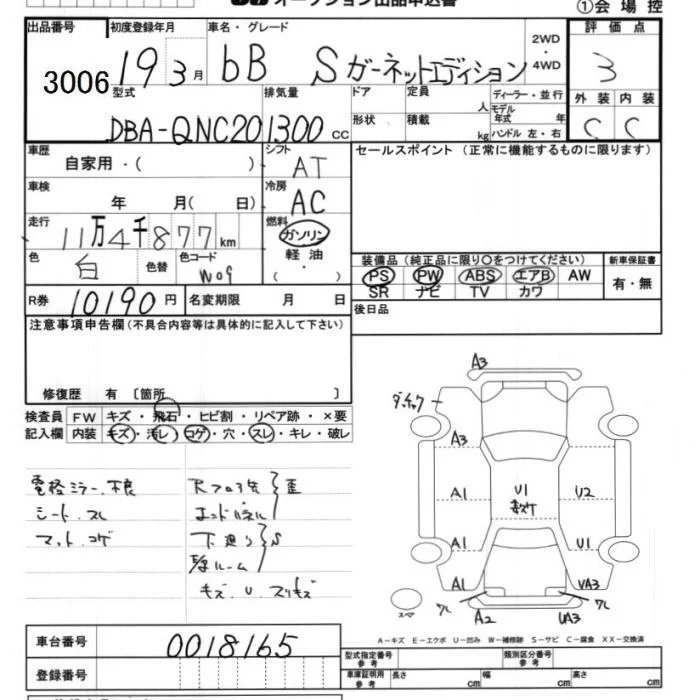 オークション出品申込書
①会場控
出品番号 初度登録年月 車名・グレード 2WD・4WD 評価点
3006 19 3月 bB Sガーネットエディション 3
型式 排気量 ドア 定員 人 ディーラー・並行 外装 内装
DBA-QNC20 1300 cc 形状 積載 kg モデル年式 年 ハンドル 左・右 C C
車歴 シフト セールスポイント (正常に機能するものに限ります)
自家用・( ) AT
車検 冷房
年 月( 日) AC
走行 燃料
11万4千877km ガソリン
色 色替 色コード 軽油 装備品 (純正品に限り○をつけてください) 新車保証書
白 W09 ( ) PS PW ABS エアB AW 有・無
R券 10190円 名変期限 月 日 SR ナビ TV カワ
注意事項申告欄(不具合内容等は具体的に記入して下さい) 後日品
修復歴 有 〔箇所 〕
検査員 FW キズ・飛石・ヒビ割・リペア跡・×要
記入欄 内装 キズ・汚レ・コゲ・穴・スレ・キレ・破レ
電格ミラー不良 Rフロア先
シート.スレ エンドパネル 歪
マット.コゲ 下廻り S
ルーム
キズ.U.スリキズ
A3
A3
A1 U1 U2
A1 U1
A1 UA3
A2 UA3
スペア
A-キズ E-エクボ U-凹み W-補修跡 S-サビ C-腐食 XX-交換済
車台番号 0018165
登録番号
型式指定番号 参考 類別区分番号 参考
車庫証明用 参考 長さ cm 幅 cm 高さ cm